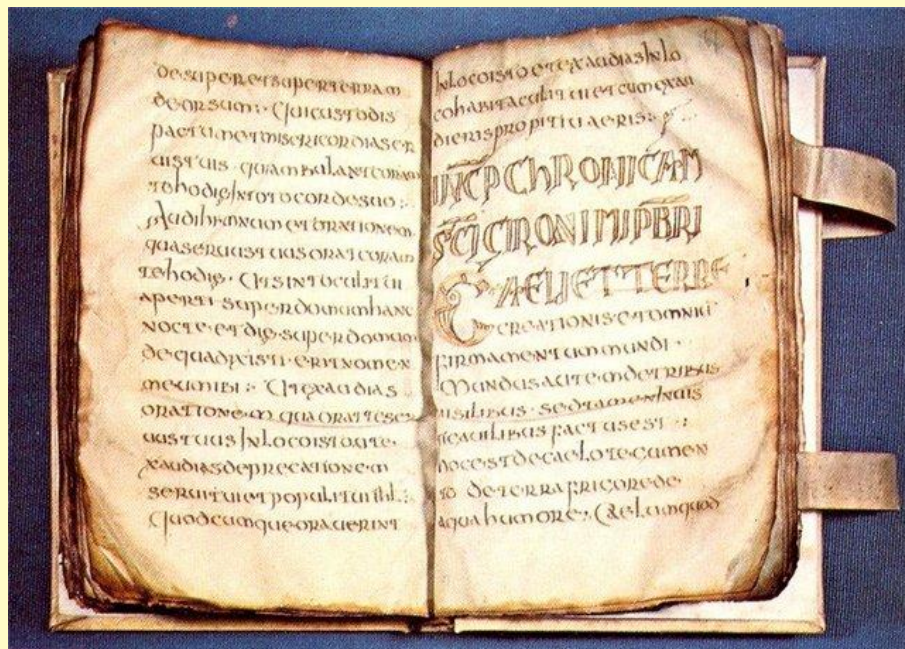 de super et super terram
deorsum : Qui custodis
pactum et misericordias ser
uis tuis · qui ambulant coram
te hodie In toto corde suo :
Audi hymnum et orationem
qua seruus tuus orat coram
te hodie · Ut sint oculi tui
aperti super domum hanc
nocte · et die · super domum
de qua dixisti · erit nomen
meum ibi : Ut exaudias
oratione m qua orat te ser
uus tuus In loco isto Ut e
xaudias deprecatione m
serui tui et populi tui ihl :
Quodcumque orauerint
In loco isto et exaudias In lo
co habitaculi tui et cum exau
diens propitiaueris :
INCP CHRONICAM
SCI CIRONIMI PBRI
CAELI ET TERRE
CREATIONIS et omniu
firmamentum mundi ·
Mundus autem de tribus
uisilibus · sed tamen
factus est :
hoc est de caelo
de terra frigore de
aqua humore : Caelum quod